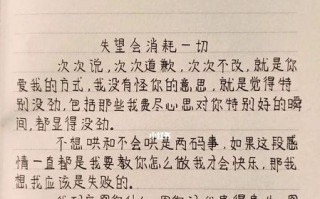 失望会消耗一切
次次说，次次道歉，次次不改，就是你
爱我的方式，我没有怪你的意思，就是觉得特
别没劲，包括那些我费尽心思，对你特别好的瞬
间，都显得没劲。
不想哄和不会哄是两码事，如果这段感
情一直都是我要教你怎么做我才会快乐，那我
想，我应该是失败的。